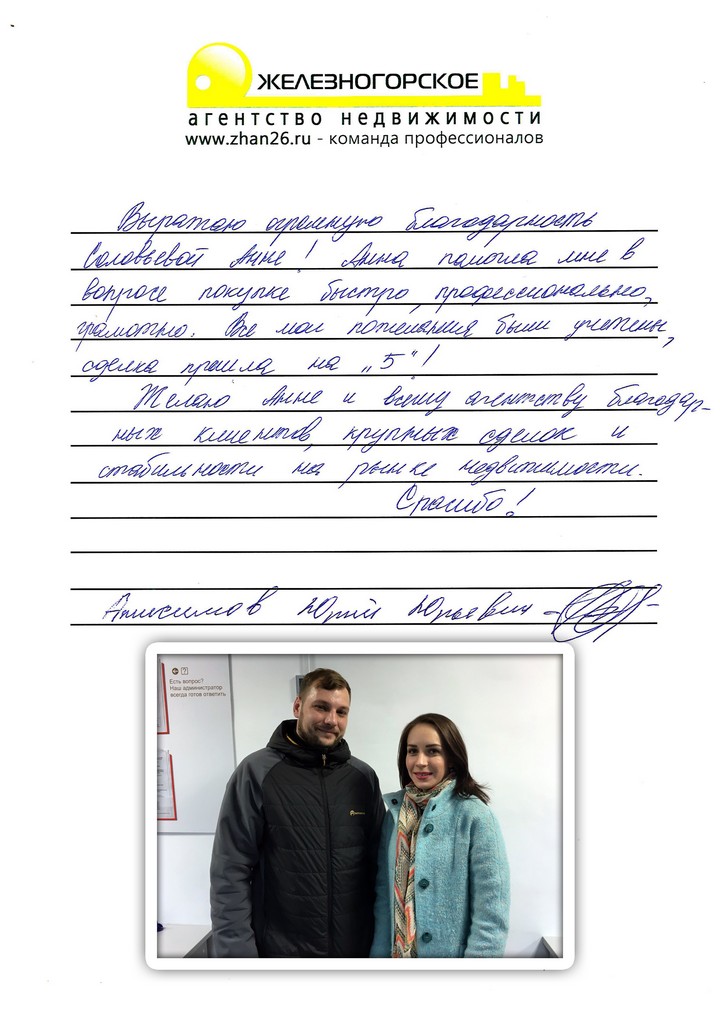 ЖЕЛЕЗНОГОРСКОЕ
агентство недвижимости
www.zhan26.ru - команда профессионалов
Выражаю огромную благодарность
Соловьевой Анне! Анна помогла мне в
вопросе покупке быстро, профессионально,
грамотно. Все мои пожелания были учтены,
сделка прошла на „5"!
Желаю Анне и всему агентству благодар-
ных клиентов, крупных сделок и
стабильности на рынке недвижимости.
Спасибо!
Анисимов Юрий Юрьевич
Есть вопрос?
Наш администратор
всегда готов ответить